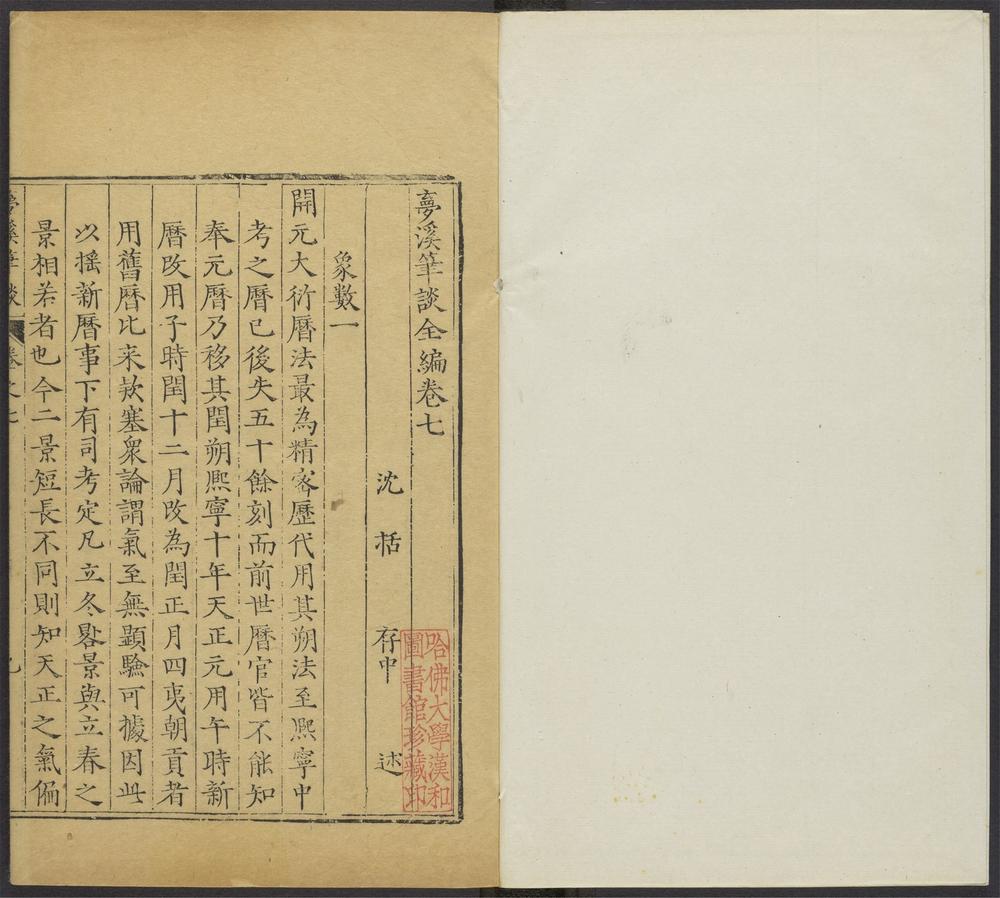 夢溪筆談全編卷七
沈括 存中 述
象數一
開元大衍曆法最為精宻歷代用其朔法至熙寧中
考之曆已後失五十餘刻而前世曆官皆不能知
奉元曆乃移其閏朔熙寧十年天正元用午時新
曆改用子時閏十二月改為閏正月四夷朝貢者
用舊曆比来欵塞衆論謂氣至無顯驗可據因此
以揺新曆事下有司考定凡立冬晷景與立春之
景相若者也今二景短長不同則知天正之氣偏
夢溪筆談
卷之七
哈佛大學漢和
圖書館珍藏印